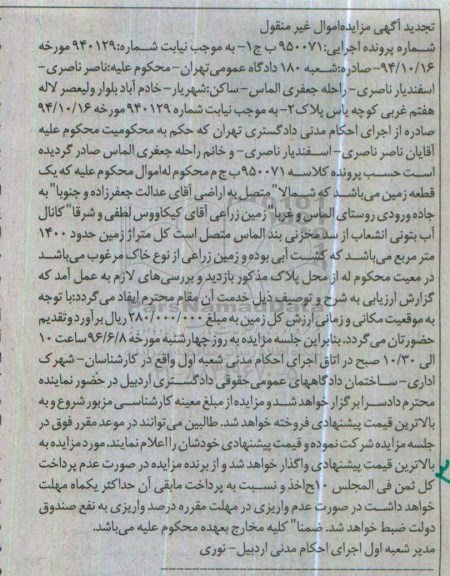 تجدید آگهی مزایده اموال غیر منقول
شماره پرونده اجرایی:۹۵۰۰۷۱ ب ج۱- به موجب نیابت شماره:۹۴۰۱۲۹ مورخه
۹۴/۱۰/۱۶-صادره:شعبه ۱۸۰ دادگاه عمومی تهران- محکوم علیه:ناصر ناصری-
اسفندیار ناصری- راحله جعفری الماس- ساکن:شهریار- خادم آباد بلوار ولیعصر لاله
هفتم غربی کوچه یاس پلاک۲- به موجب نیابت شماره ۹۴۰۱۲۹ مورخه ۹۴/۱۰/۱۶
صادره از اجرای احکام مدنی دادگستری تهران که حکم به محکومیت محکوم علیه
آقایان ناصر ناصری- اسفندیار ناصری- و خانم راحله جعفری الماس صادر گردیده
است حسب پرونده کلاسه ۹۵۰۰۷۱ب ج م محکوم له اموال محکوم علیه که یک
قطعه زمین می‌باشد که شمالا" متصل به اراضی آقای عدالت جعفرزاده و جنوبا" به
جاده ورودی روستای الماس و غربا" زمین زراعی آقای کیکاووس لطفی و شرقا" کانال
آب بتونی انشعاب از سد مخزنی بند الماس متصل است کل متراژ زمین حدود ۱۴۰۰
متر مربع می‌باشد که کشت آبی بوده و زمین زراعی از نوع خاک مرغوب می‌باشد
در معیت محکوم له از محل پلاک مذکور بازدید و بررسی‌های لازم به عمل آمد که
گزارش ارزیابی به شرح و توصیف ذیل خدمت آن مقام محترم ایفاد می‌گردد:با توجه
به موقعیت مکانی و زمانی ارزش کل زمین به مبلغ ۲۸۰/۰۰۰/۰۰۰ ریال برآورد و تقدیم
حضورتان می‌گردد.بنابراین جلسه مزایده به روز چهارشنبه مورخه ۹۶/۶/۸ ساعت ۱۰
الی ۱۰/۳۰ صبح در اتاق اجرای احکام مدنی شعبه اول واقع در کارشناسان- شهرک
اداری- ساختمان دادگاههای عمومی حقوقی دادگستری اردبیل در حضور نماینده
محترم دادسرا برگزار خواهد شد و مزایده از مبلغ معینه کارشناسی مزبور شروع و به
بالاترین قیمت پیشنهادی فروخته خواهد شد. طالبین می‌توانند در موعد مقرر فوق در
جلسه مزایده شرکت نموده و قیمت پیشنهادی خودشان را اعلام نمایند. مورد مزایده به
بالاترین قیمت پیشنهادی واگذار خواهد شد و از برنده مزایده در صورت عدم پرداخت
کل ثمن فی المجلس ۱۰٪اخذ و نسبت به پرداخت مابقی آن حداکثر یکماه مهلت
خواهد داشت در صورت عدم واریزی در مهلت مقرره درصد واریزی به نفع صندوق
دولت ضبط خواهد شد. ضمنا" کلیه مخارج بعهده محکوم علیه می‌باشد.
مدیر شعبه اول اجرای احکام مدنی اردبیل- نوری